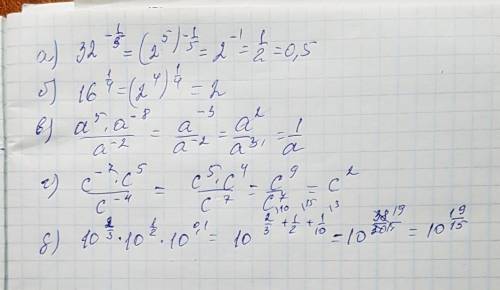 а) 32^{-1/5} = (2^5)^{-1/5} = 2^{-1} = 1/2 = 0,5
б) 16^{1/4} = (2^4)^{1/4} = 2
в) (a^5 · a^{-8})/a^{-2} = a^{-3}/a^{-2} = a^2/a^3 = 1/a
г) (c^{-7} · c^5)/c^{-4} = (c^5 · c^4)/c^7 = c^9/c^7 = c^2
д) 10^{2/3} · 10^{1/2} · 10^{0,1} = 10^{2/3 \10 + 1/2 \15 + 1/10 \3} = 10^{38/30 19/15} = 10^{19/15}